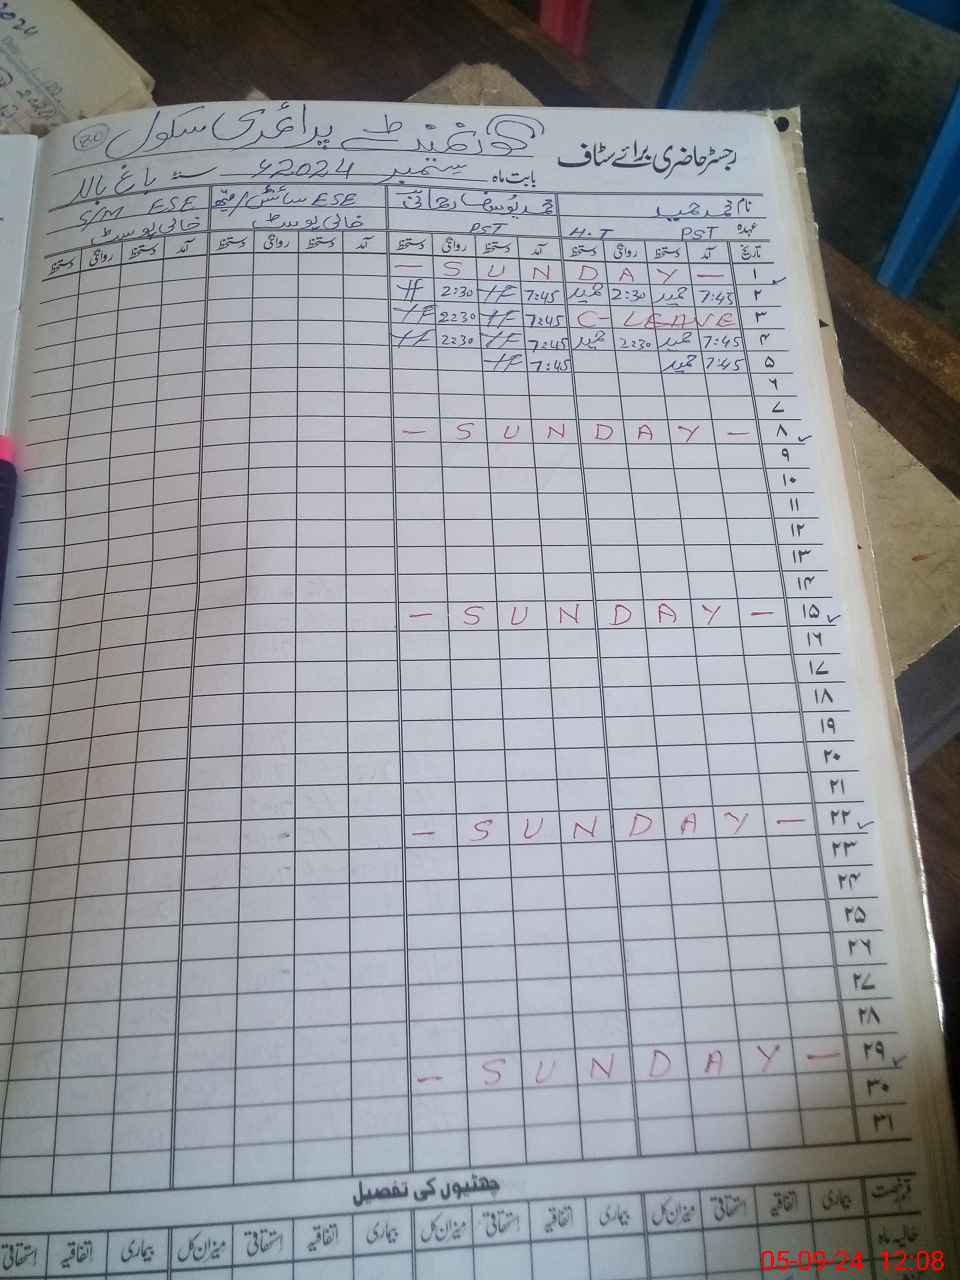 گورنمنٹ پرائمری سکول
80
رجسٹر حاضری برائے سٹاف
بابت ماہ ستمبر 2024ء باغ بالا
نام محمد حمید محمد یوسف ESE سائنس/میتھ S/M ESE
عہدہ PST H.T PST خالی پوسٹ خالی پوسٹ
تاریخ آمد دستخط روانگی دستخط آمد دستخط روانگی دستخط آمد دستخط روانگی دستخط آمد دستخط روانگی دستخط
۱ - SUNDAY -
۲ 7:45 حمید 2:30 حمید 7:45 YF 2:30 YF
۳ C- LEAVE 7:45 YF 2:30 YF
۴ 7:45 حمید 2:30 حمید 7:45 YF 2:30 YF
۵ 7:45 حمید 7:45 YF
۶
۷
۸ - SUNDAY -
۹
۱۰
۱۱
۱۲
۱۳
۱۴
۱۵ - SUNDAY -
۱۶
۱۷
۱۸
۱۹
۲۰
۲۱
۲۲ - SUNDAY -
۲۳
۲۴
۲۵
۲۶
۲۷
۲۸
۲۹ - SUNDAY -
۳۰
۳۱
چھٹیوں کی تفصیل
قسم رخصت بیماری اتفاقیہ استحقاقی میزان کل بیماری اتفاقیہ استحقاقی میزان کل بیماری اتفاقیہ استحقاقی میزان کل بیماری اتفاقیہ استحقاقی
حالیہ ماہ
05-09-24 12:08